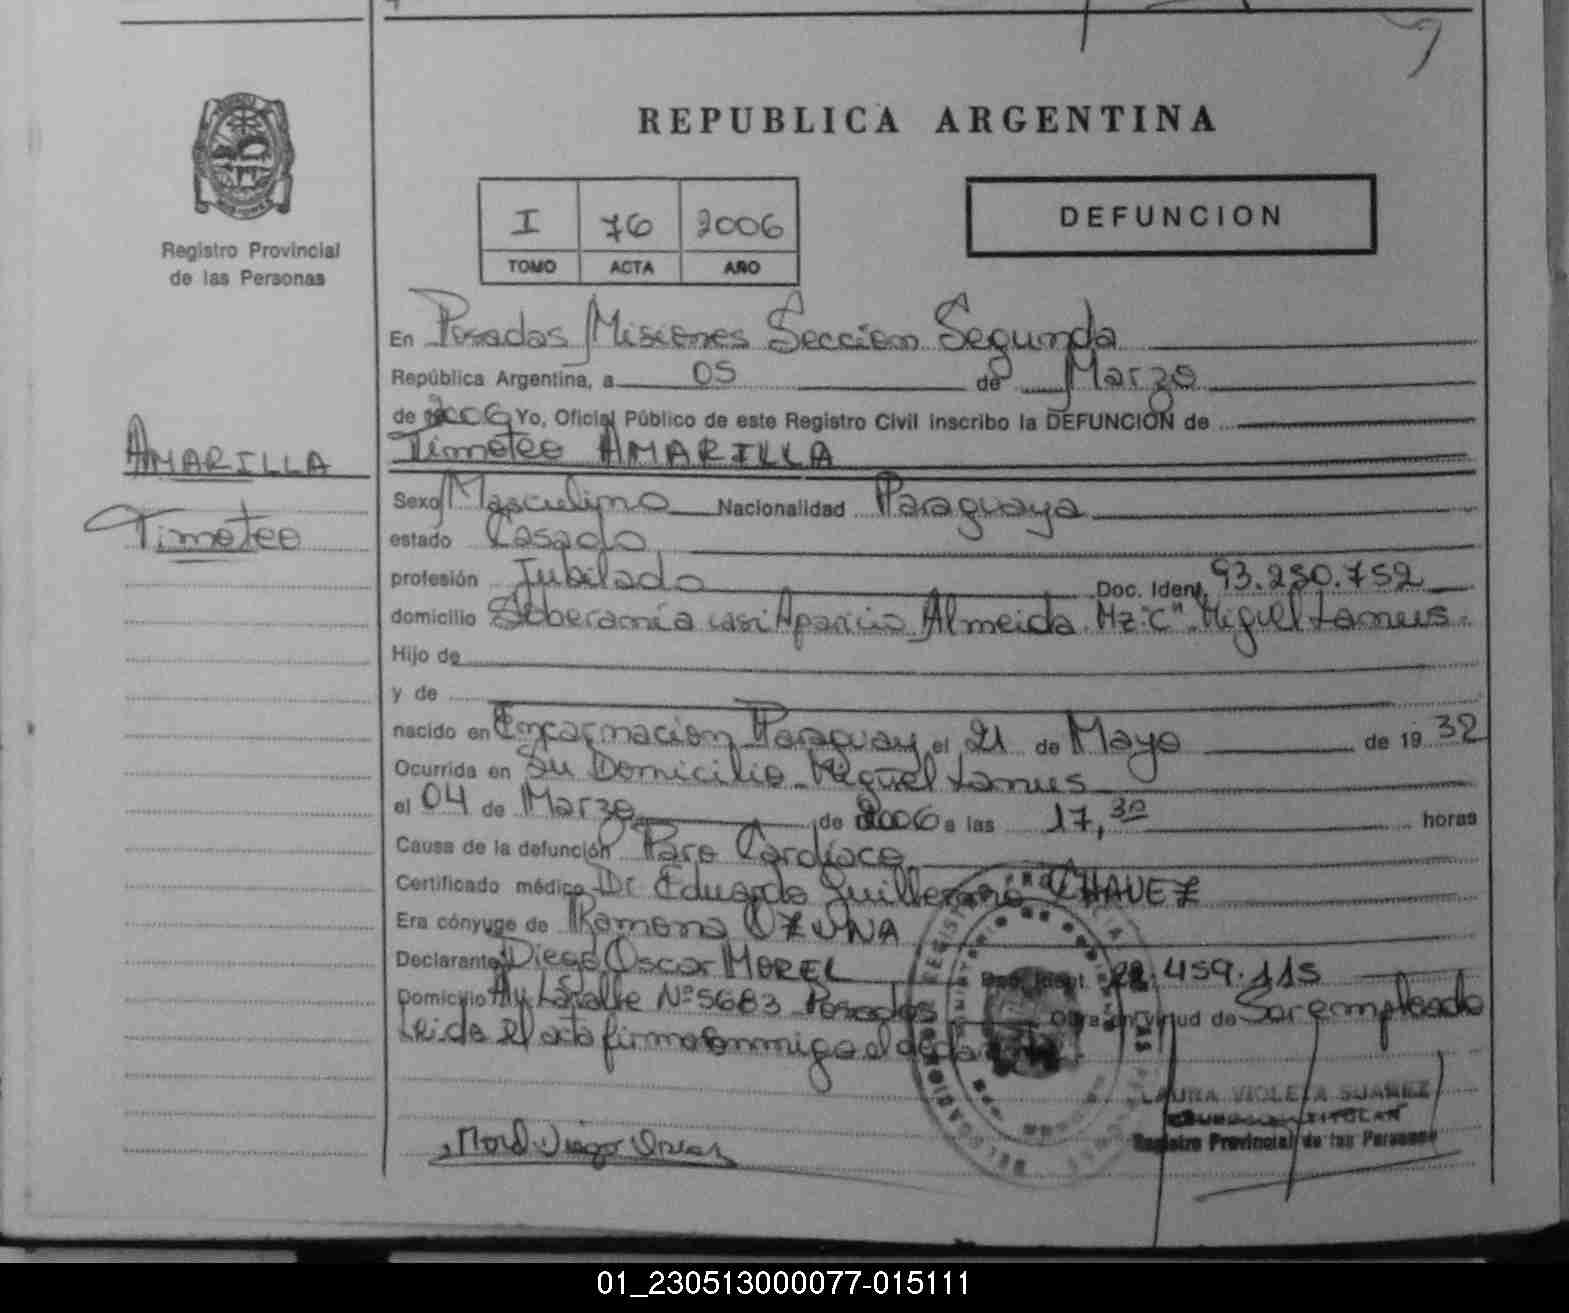 REPUBLICA ARGENTINA
Registro Provincial
de las Personas
I 76 2006
TOMO ACTA AÑO
DEFUNCION
En Posadas Misiones Sección Segunda
República Argentina, a 05 de Marzo
de 2006 Yo, Oficial Público de este Registro Civil inscribo la DEFUNCIÓN de
AMARILLA
Timoteo
Timoteo AMARILLA
Sexo Masculino Nacionalidad Paraguaya
estado Casado
profesión Jubilado Doc. Ident. 93.230.752
domicilio Soberanía casi Aparicio Almeida Mz "C" Miguel Lanus
Hijo de
y de
nacido en Encarnación Paraguay el 21 de Mayo de 1932
Ocurrida en Su Domicilio Miguel Lanus
el 04 de Marzo de 2006 a las 17,30 horas
Causa de la defunción Paro Cardíaco
Certificado médico Dr Eduardo Guillermo CHAVEZ
Era cónyuge de Ramona OZUNA
Declarante Diego Oscar MOREL Doc. Ident. 22.459.115
Domicilio Av Lavalle Nº 5683 Posadas Obra en virtud de Ser empleado
Leida el acta firma conmigo el
LAURA VIOLETA SUAREZ
TITULAR
Registro Provincial de las Personas
Morel Diego Oscar
01_230513000077-015111